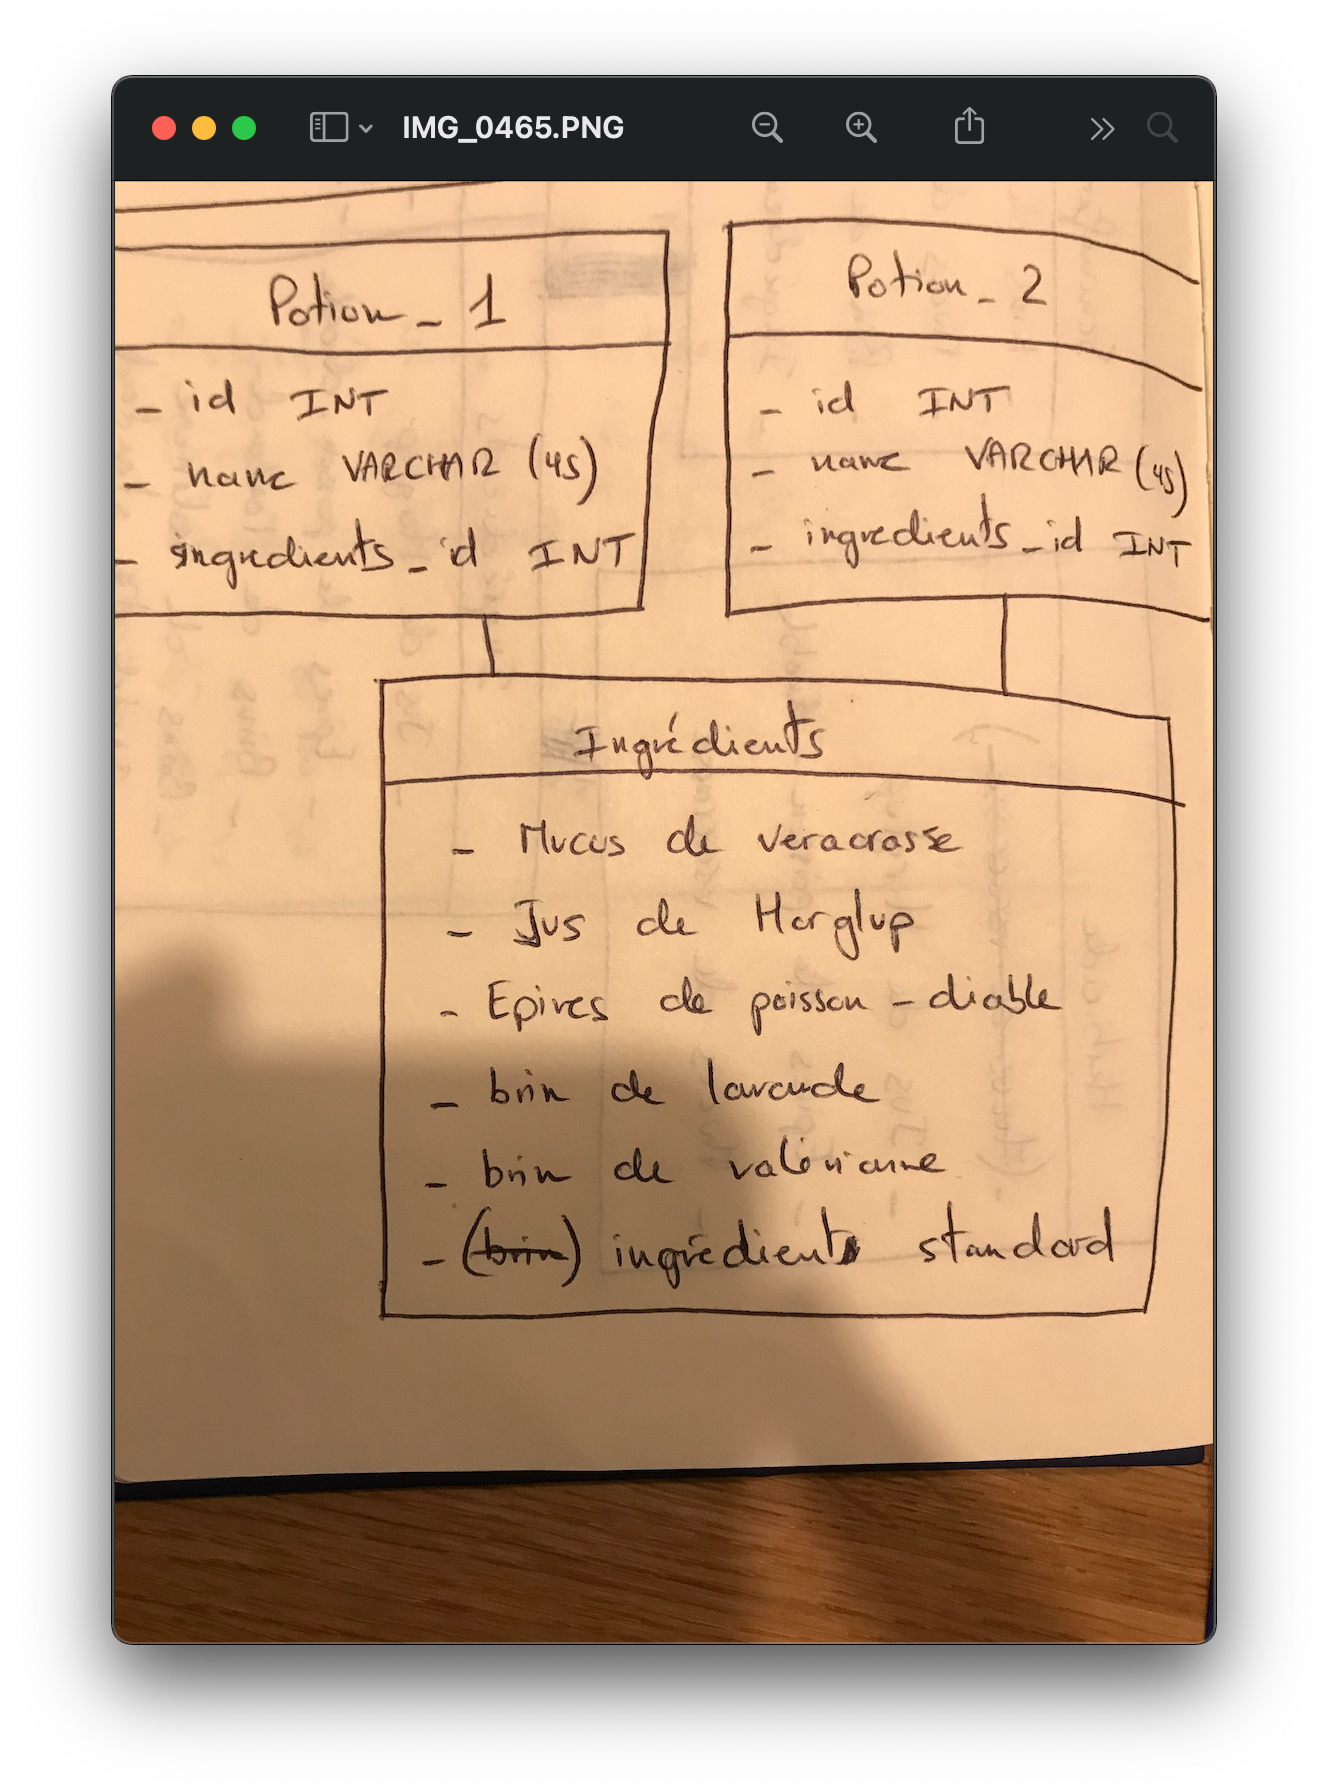 IMG_0465.PNG
Potion_1
- id INT
- name VARCHAR (45)
- ingredients_id INT
Potion_2
- id INT
- name VARCHAR (45)
- ingredients_id INT
Ingrédients
- Mucus de veracrasse
- Jus de Horglup
- Epines de poisson-diable
- brin de lavande
- brin de valérianne
- (brin) ingrédient standard